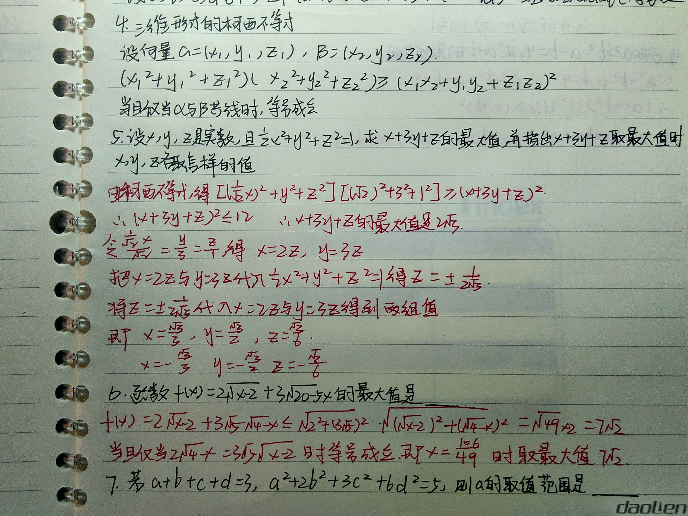 4. 三维形式的柯西不等式
设向量α=(x₁,y₁,z₁), β=(x₂,y₂,z₂).
(x₁²+y₁²+z₁²)(x₂²+y₂²+z₂²)≥(x₁x₂+y₁y₂+z₁z₂)²
当且仅当α与β共线时,等号成立
5. 设x,y,z是实数,且½x²+y²+z²=1,求x+3y+z的最大值,并指出x+3y+z取最大值时
x,y,z取怎样的值
由柯西不等式,得[(1/√2 x)²+y²+z²][(√2)²+3²+1²]≥(x+3y+z)²
∴(x+3y+z)²≤12 ∴x+3y+z的最大值是2√3.
令 (1/√2 x)/√2=y/3=z/1,得 x=2z, y=3z
把x=2z与y=3z代入½x²+y²+z²=1得z=±1/(2√3)
将z=±1/(2√3)代入x=2z与y=3z得到两组值
即 x=√3/3, y=√3/2, z=√3/6
x=-√3/3 y=-√3/2 z=-√3/6
6. 函数f(x)=2√x-2+3√20-5x的最大值是
f(x)=2√x-2+3√5·√4-x≤√2²+(3√5)² √(√x-2)²+(√4-x)²=√49×2=7√2
当且仅当2√4-x=3√5√x-2时等号成立.即x=106/49 时取最大值7√2.
7. 若a+b+c+d=3, a²+2b²+3c²+6d²=5, 则a的取值范围是
daolien